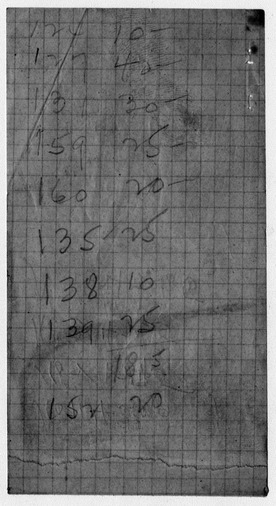 127 40-
131 30-
159 25-
160 20-
135 25
138 10
139 25
185
152 20